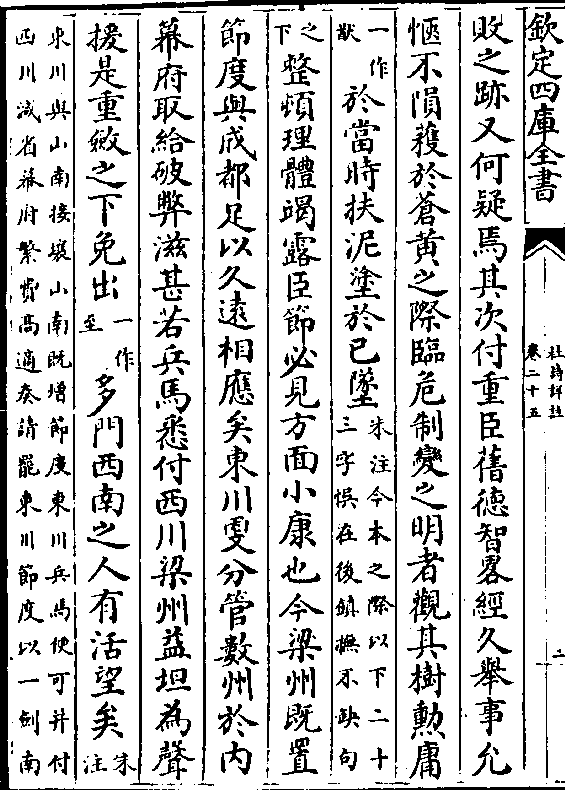 欽定四庫全書
杜詩詳註
卷二十五
二
敗之跡又何疑焉其次付重臣舊德智畧經久舉事允
愜不隕穫於蒼黄之際臨危制變之明者觀其樹勲庸
一作猷
於當時扶泥塗於已墜
朱注今本之際以下二十
三字悞在後鎮撫不缺句
之下
整頓理體竭露臣節必見方面小康也今梁州既置
節度與成都足以久遠相應矣東川更分管數州於内
幕府取給破弊滋甚若兵馬悉付西川梁州益坦為聲
援是重斂之下免出
一作至
多門西南之人有活望矣
朱注
東川與山南接壤山南既增節度東川兵馬便可并付
西川減省幕府繁費髙適奏請罷東川節度以一劍南